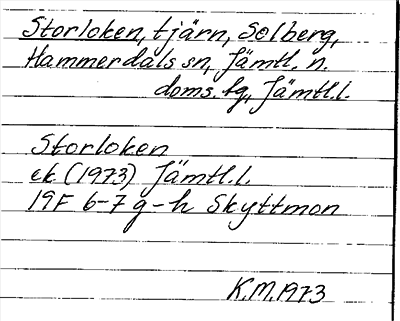 Storloken, tjärn, Solberg,
Hammerdals sn, Jämtl. n.
doms. fg, Jämtl.l.
Storloken
ek (1973) Jämtl.l.
19F 6-7 g-h Skyttmon
K.M. 1973